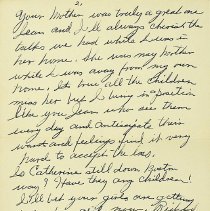 2.
Your Mother was truly a great one
Jean and I'll always cherish the
talks we had while I was in
her home. She was my mother
while I was away from my own
home. I know all the children
miss her but I bring in
like you Jean who see them
every day and anticipate their
wants and feelings find it very
hard to accept the loss.
Is Catherine still down Boston
way? Have they any children?
I'll bet your girls are getting